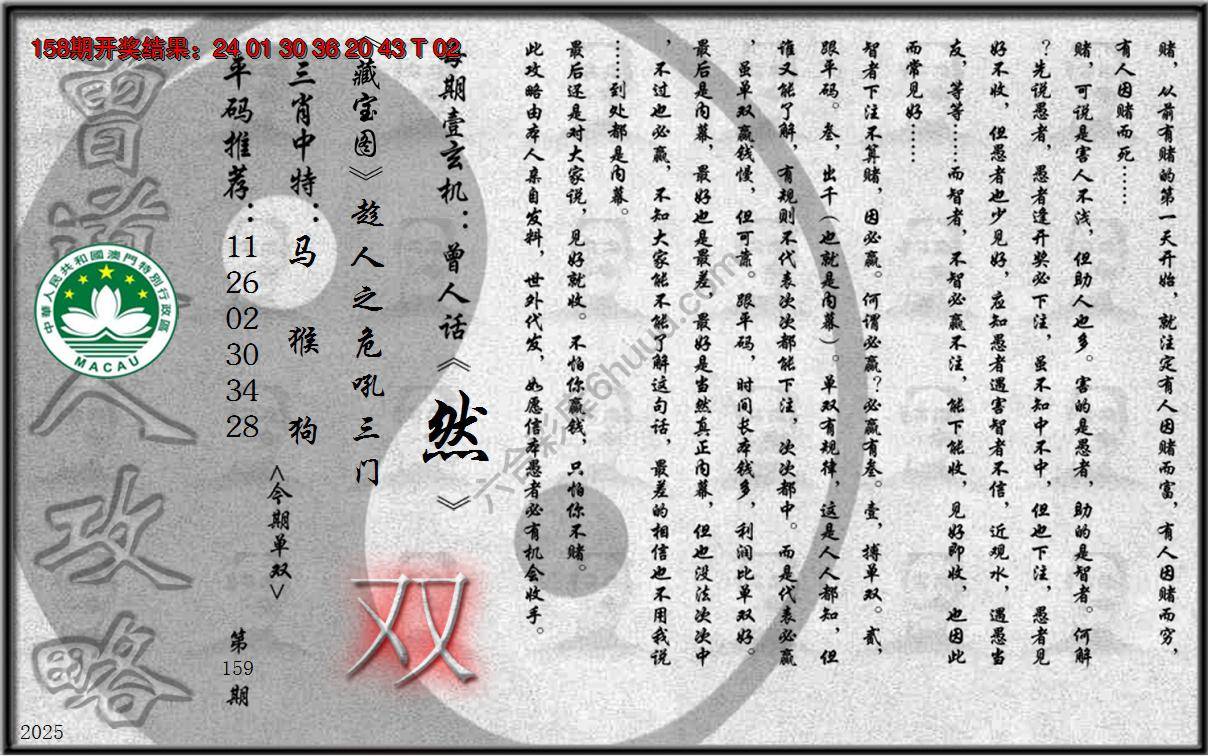 158期开奖结果：24 01 30 36 20 43 T 02
赌，从前有赌的第一天开始，就注定有人因赌而富，有人因赌而穷，
有人因赌而死……
赌，可说是害人不浅，但助人也多。害的是愚者，助的是智者。何解
？先说愚者，愚者逢开奖必下注，虽不知中不中，但也下注，愚者见
好不收，但愚者也少见好，应知愚者遇害智者不信，近观水，遇愚当
友，等等……而智者，不智必赢不注，能下能收，见好即收，也因此
而常见好……
智者下注不算赌，因必赢。何谓必赢？必赢有叁。壹，搏单双。贰，
跟平码。叁，出千（也就是内幕）。单双有规律，这是人人都知，但
谁又能了解，有规则不代表次次都能下注，次次都中。而是代表必赢
，虽单双赢钱慢，但可靠。跟平码，时间长本钱多，利润比单双好。
最后是内幕，最好也是最差，最好是当然真正内幕，但也没法次次中
，不过也必赢，不知大家能不能了解这句话，最差的相信也不用我说
……到处都是内幕。
最后还是对大家说，见好就收。不怕你赢钱，只怕你不赌。
此攻略由本人亲自发料，世外代发，如愿信本愚者必有机会收手。
每期壹玄机：曾人话《然》
《藏宝图》趁人之危吼三门
双
三肖中特：马 猴 狗
<今期单双>
平码推荐：
11
26
02
30
34
28
第
159
期
曾道人攻略
中華人民共和國澳門特別行政區
MACAU
2025
六合彩库6huuu.com